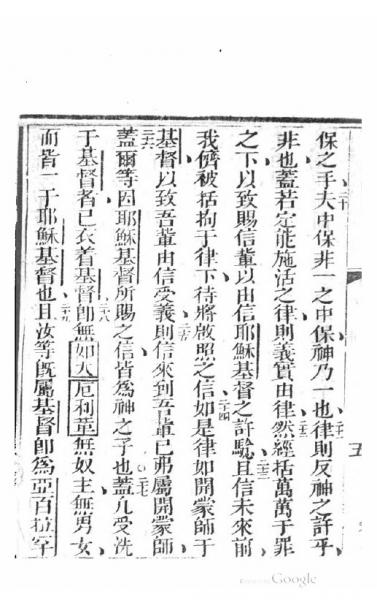 保之手夫中保非一之中保神乃一也律則反神之許乎
非也蓋若定能施活之律則義實由律然經括萬萬于罪
之下以致賜信輩以由信耶穌基督之許驗且信未來前
我儕被括拘于律下待將啟照之信如是律如開蒙師于
基督以致吾輩由信受義則信來到吾輩已弗屬開蒙師
蓋爾等因耶穌基督所賜之信皆為神之子也蓋凡受洗
于基督者已衣着基督即無如大厄利革無奴主無男女
而皆一于耶穌基督也且汝等旣屬基督即為亞百拉罕
二十
二十一
二十二
二十三
二十四
二十五
二十六
二十七
二十八
二十九
五
Google